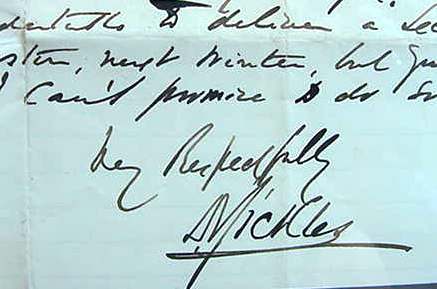 to deliver a
next Winter, but
I Can't promise to do so
Very Respectfully
DSickles